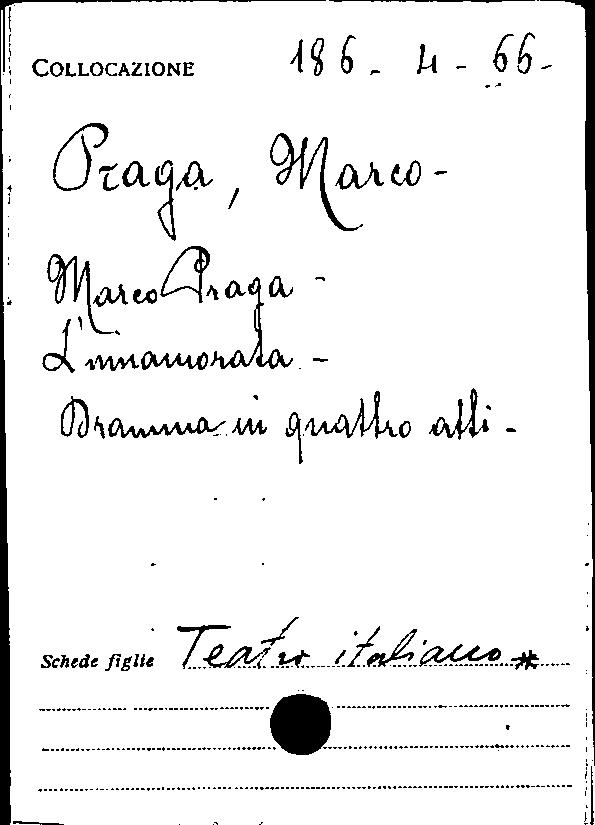 COLLOCAZIONE 186 - 4 - 66 -
Praga, Marco -
Marco Praga -
L'innamorata -
Dramma in quattro atti -
Schede figlie Teatro italiano *